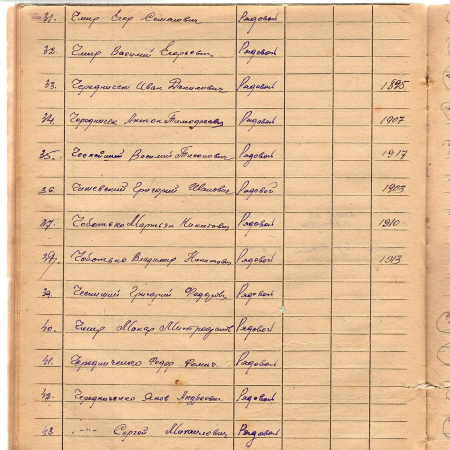 31. Чмир Егор Семенович Рядовой
32. Чмир Василий Егорьевич Рядовой
33. Иван Данилович Рядовой 1895
34. Антон Тимофеевич Рядовой 1907
35. Василий Рядовой 1917
36. Чижевский Григорий Иванович Рядовой 1903
37. Чоботько Мартьян Никитович Рядовой 1910
38. Чоботько Владимир Никитович Рядовой 1913
39. Григорий Федорович Рядовой
40. Чмир Макар Митрофанов Рядовой
41. Чередниченко Федор Фомич Рядовой
42. Чередниченко Яков Андреевич Рядовой
43. -"- Сергей Михайлович Рядовой